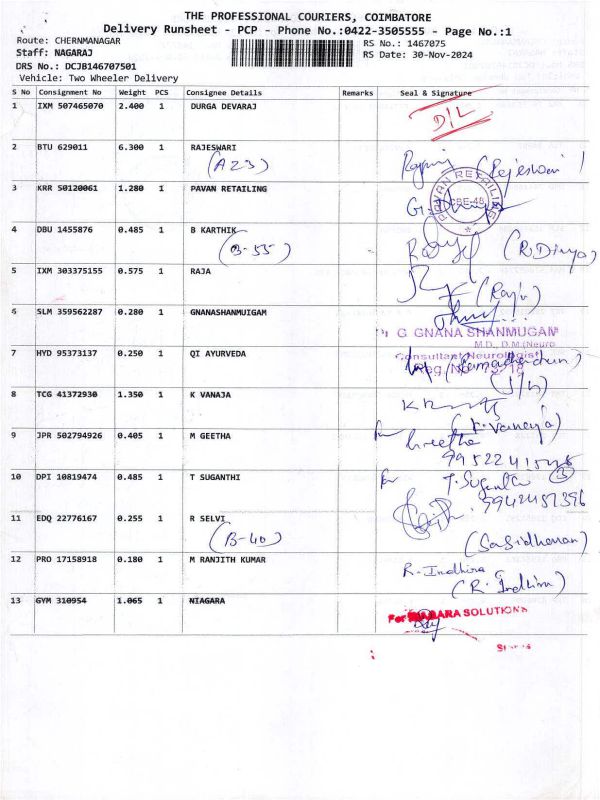 THE PROFESSIONAL COURIERS, COIMBATORE
Delivery Runsheet - PCP - Phone No.:0422-3505555 - Page No.:1
Route: CHERNMANAGAR
Staff: NAGARAJ
DRS No.: DCJB146707501
Vehicle: Two Wheeler Delivery
RS No.: 1467075
RS Date: 30-Nov-2024
S No Consignment No Weight PCS Consignee Details Remarks Seal & Signature
1 IXM 507465070 2.400 1 DURGA DEVARAJ D/L
2 BTU 629011 6.300 1 RAJESWARI
(A23) (Rajeswari)
3 KRR 50120061 1.280 1 PAVAN RETAILING
PAVAN RETAILING CBE-48
4 DBU 1455876 0.485 1 B KARTHIK
(B-55) (R.Divya)
5 IXM 303375155 0.575 1 RAJA
(Raju)
6 SLM 359562287 0.280 1 GNANASHMUIGAM
G GNANA SHANMUGAM
M.D., D.M.(Neuro
Consultant Neurologist
Reg. No.
7 HYD 95373137 0.250 1 QI AYURVEDA
8 TCG 41372930 1.350 1 K VANAJA
(K.Vanaja)
9 JPR 502794926 0.405 1 M GEETHA for Geetha
10 DPI 10819474 0.485 1 T SUGANTHI for T. Suganthi
11 EDQ 22776167 0.255 1 R SELVI
(B-40) (Sasidharan)
12 PRO 17158918 0.180 1 M RANJITH KUMAR R. Indhira
(R. Indhira)
13 GYM 310954 1.065 1 NIAGARA
For NIAGARA SOLUTIONS